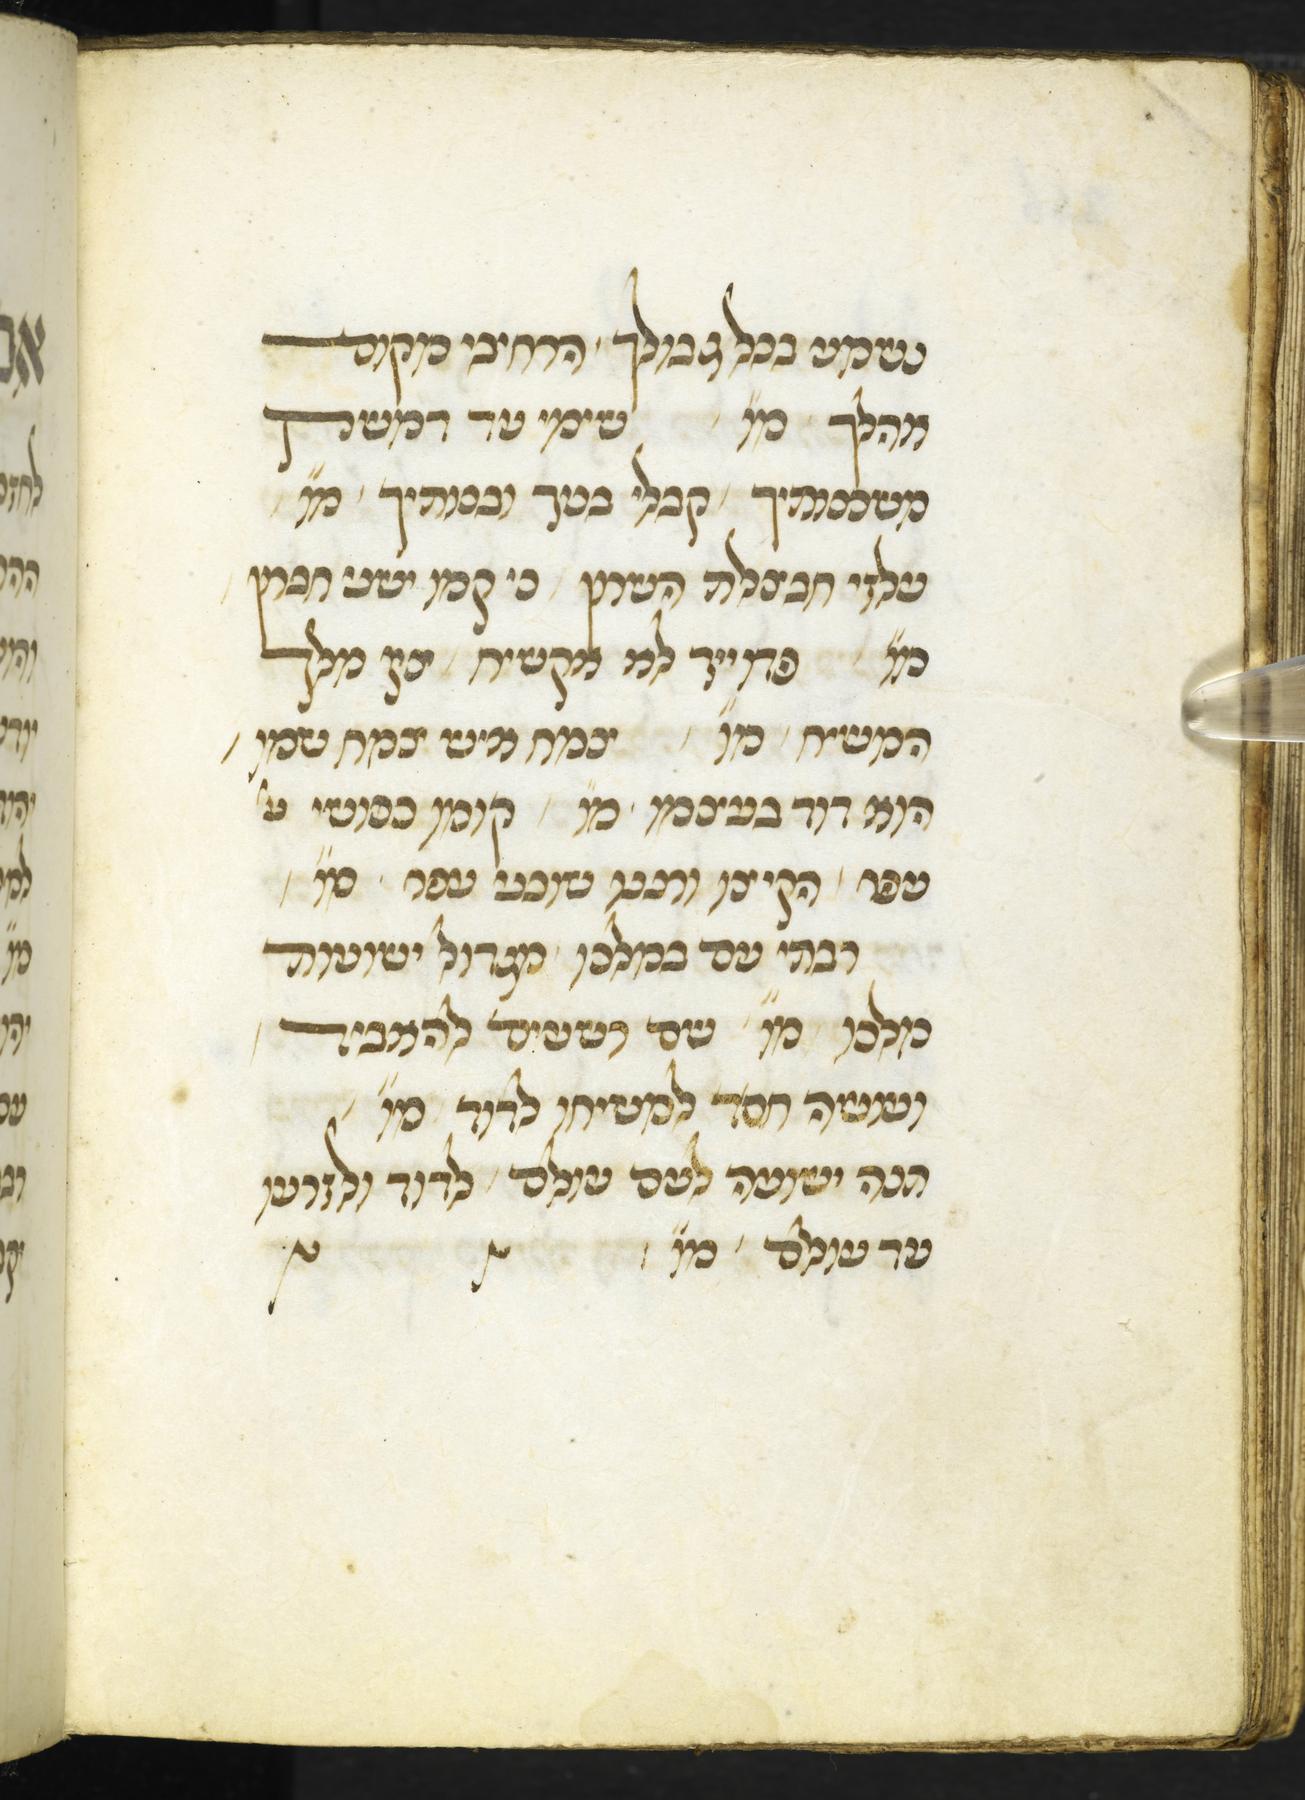 נשמע בכל גבולך הרחיבי מקום
אהלך מו שימי עד דמשק
משכנותיך קבלי בנך ובנותיך מו
עלזי חבצלת השרון כי קמו ישני חברון
מו פדוייך לא אקשיח יצץ מלך
המשיח מו יצמח איש צמח שמו
הוא דוד בעצמו מו קומו כפושי ע
עפר הקיצו ורננו שוכני עפר מו
רבתי עם במלכו מגדול ישועות
מלכו מו שם רשעים להאביד
ועושה חסד למשיחו לדוד מו
תנה ישועה לעם עולם לדוד ולזרעו
עד עולם מו